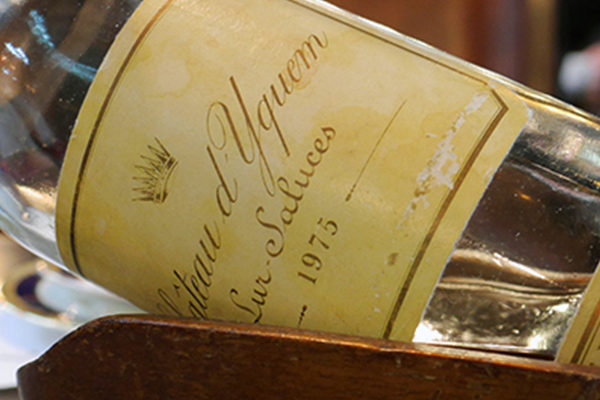 Château d'Yquem
Lur-Saluces
1975